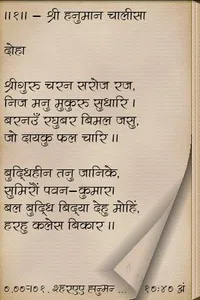 ॥१॥ – श्री हनुमान चालीसा
दोहा
श्रीगुरु चरन सरोज रज,
निज मनु मुकुरु सुधारि ।
बरनउँ रघुबर बिमल जसु,
जो दायकु फल चारि ।।
बुद्धिहीन तनु जानिके,
सुमिरौं पवन-कुमार।
बल बुद्धि बिद्या देहु मोहिं,
हरहु कलेस बिकार ।।
१०:४० अं